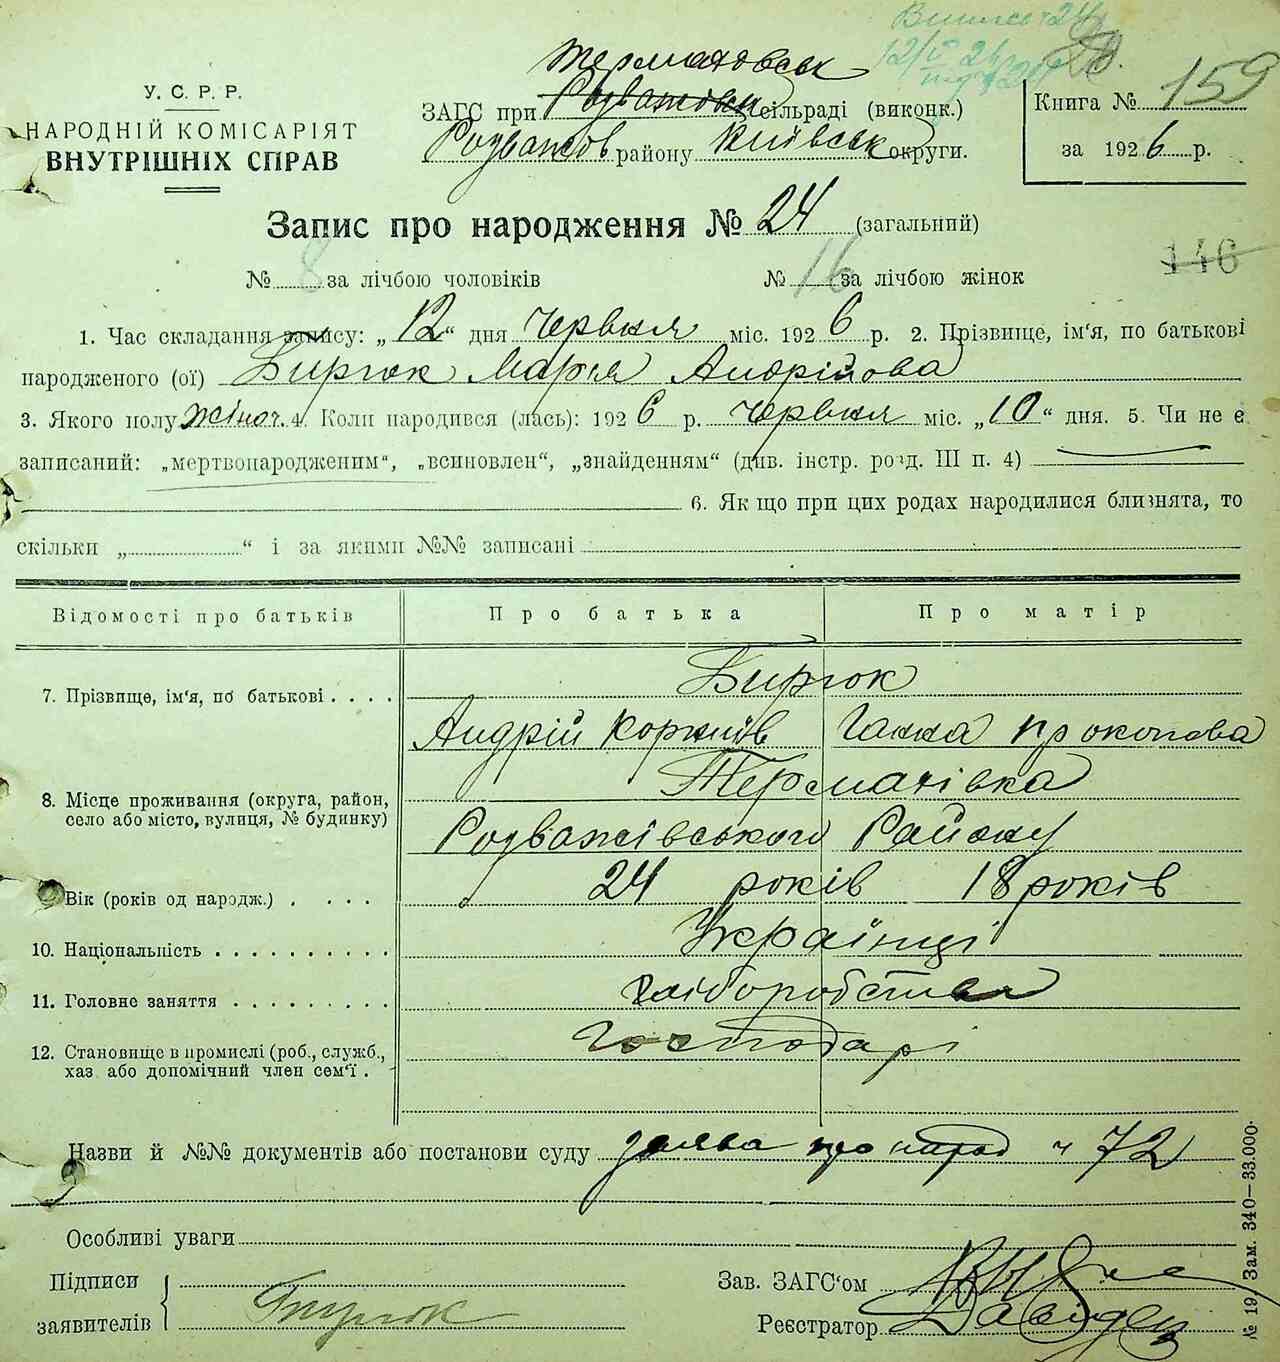 12/V 26
У. С. Р. Р.
НАРОДНІЙ КОМІСАРІЯТ
ВНУТРІШНІХ СПРАВ
Термаховськ
ЗАГС при Розважовськ сільраді (виконк.)
Розважов району Київськ округи.
Книга № 159
за 1926 р.
Запис про народження № 24 (загальний)
№ 8 за лічбою чоловіків № 16 за лічбою жінок
146
1. Час складання запису: „12“ дня Червня міс. 1926 р. 2. Прізвище, ім'я, по батькові
народженого (ої) Бирюк Марія Андрійова
3. Якого полу жіноч. 4. Коли народився (лась): 1926 р. Червня міс. „10“ дня. 5. Чи не є
записаний: „мертвонародженим“, „всиновлен“, „знайденням“ (див. інстр. розд. III п. 4)
6. Як що при цих родах народилися близнята, то
скільки „ “ і за якими №№ записані
Відомості про батьків Про батька Про матір
7. Прізвище, ім'я, по батькові . . . . Бирюк
Андрій Корніїв Ганна Прокопова
8. Місце проживання (округа, район, село або місто, вулиця, № будинку) Термахівка
Розважівського Району
Вік (років од народж.) . . . . 24 років 18 років
10. Національність . . . . . . . . . . Українці
11. Головне заняття . . . . . . . . . хліборобства
12. Становище в промислі (роб., служб., Господарі
хаз. або допомічний член сем'ї .
Назви й №№ документів або постанови суду заява про народ ч 72
Особливі уваги
Підписи
заявителів Бирюк
Зав. ЗАГС'ом
Реєстратор Давидец
№ 19. Зам. 340—33.000.